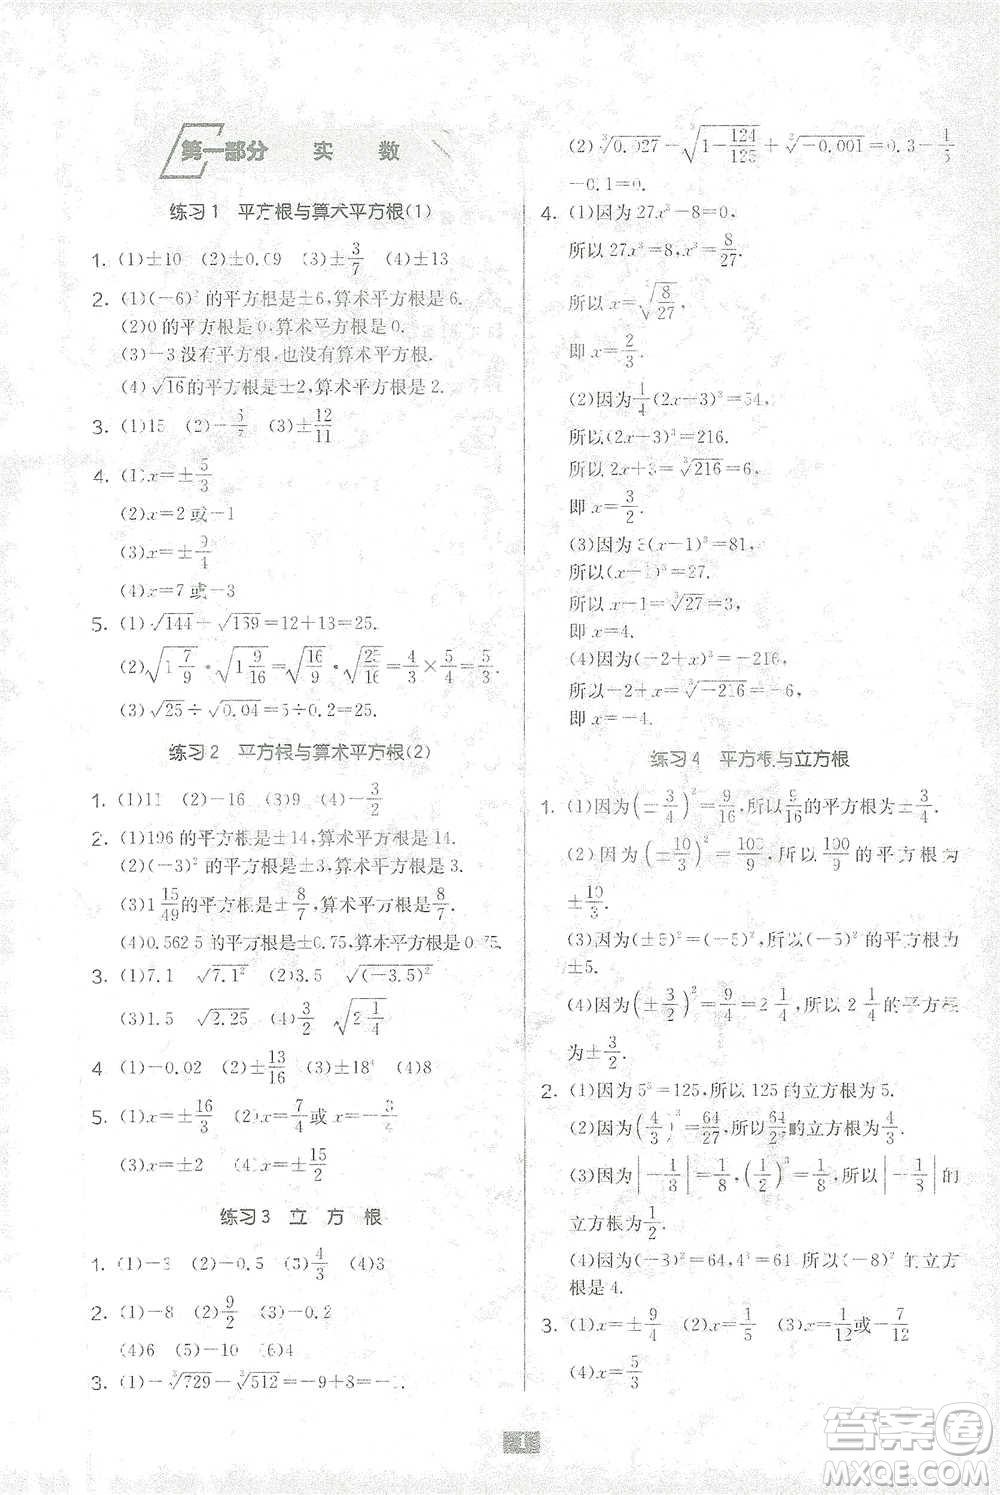 第一部分 实 数
练习1 平方根与算术平方根(1)
1. (1)±10 (2)±0.09 (3)±3/7 (4)±13
2. (1)(-6)²的平方根是±6,算术平方根是6.
(2)0的平方根是0,算术平方根是0.
(3)-3没有平方根,也没有算术平方根.
(4)√16的平方根是±2,算术平方根是2.
3. (1)15 (2)- /7 (3)±12/11
4. (1)x=±5/3
(2)x=2或-1
(3)x=±9/4
(4)x=7或-3
5. (1)√144+√169=12+13=25.
(2)√(1 7/9)·√(1 9/16)=√(16/9)·√(25/16)=4/3×5/4=5/3.
(3)√25÷√0.04=5÷0.2=25.
练习2 平方根与算术平方根(2)
1. (1)11 (2)-16 (3)9 (4)-3/2
2. (1)196的平方根是±14,算术平方根是14.
(2)(-3)²的平方根是±3,算术平方根是3.
(3)1 15/49的平方根是±8/7,算术平方根是8/7.
(4)0.562 5的平方根是±0.75,算术平方根是0.75.
3. (1)7.1 √7.1² (2)3.5 √(-3.5)²
(3)1.5 √2.25 (4)3/2 √(2 1/4)
4 (1)-0.02 (2)±13/16 (3)18 (4)8
5. (1)x=±16/3 (2)x=7/4或x=-3/4
(3)x=±2 (4)x=±15/2
练习3 立 方 根
1. (1)-3 (2)-0.5 (3)4/3 (4)3
2. (1)-8 (2)9/2 (3)-0.2
(4)6 (5)-10 (6)4
3. (1)-∛729+∛512=-9+8=-1.
(2)∛0.027-∛(1-124/125)+∛-0.001=0.3-1/5
-0.1=0.
4. (1)因为27x³-8=0,
所以27x³=8,x³=8/27.
所以x=∛(8/27),
即x=2/3.
(2)因为1/4(2x-3)³=54,
所以(2x-3)³=216.
所以2x+3=∛216=6,
即x=3/2.
(3)因为3(x-1)³=81,
所以(x-1)³=27.
所以x-1=∛27=3,
即x=4.
(4)因为(-2+x)³=-216,
所以-2+x=∛-216=-6,
即x=-4.
练习4 平方根与立方根
1. (1)因为(±3/4)²=9/16,所以9/16的平方根为±3/4.
(2)因为(±10/3)²=100/9,所以100/9的平方根为
±10/3.
(3)因为(±5)²=(-5)²,所以(-5)²的平方根为
±5.
(4)因为(±3/2)²=9/4=2 1/4,所以2 1/4的平方根
为±3/2.
2. (1)因为5³=125,所以125的立方根为5.
(2)因为(4/3)³=64/27,所以64/27的立方根为4/3.
(3)因为|-1/8|=1/8,(1/2)³=1/8,所以|-1/8|的
立方根为1/2.
(4)因为(-8)²=64,4³=64,所以(-8)²的立方
根是4.
3. (1)x=±9/4 (2)x=1/5 (3)x=1/12或-7/12
(4)x=5/3
1
答案圈
MXQE.COM